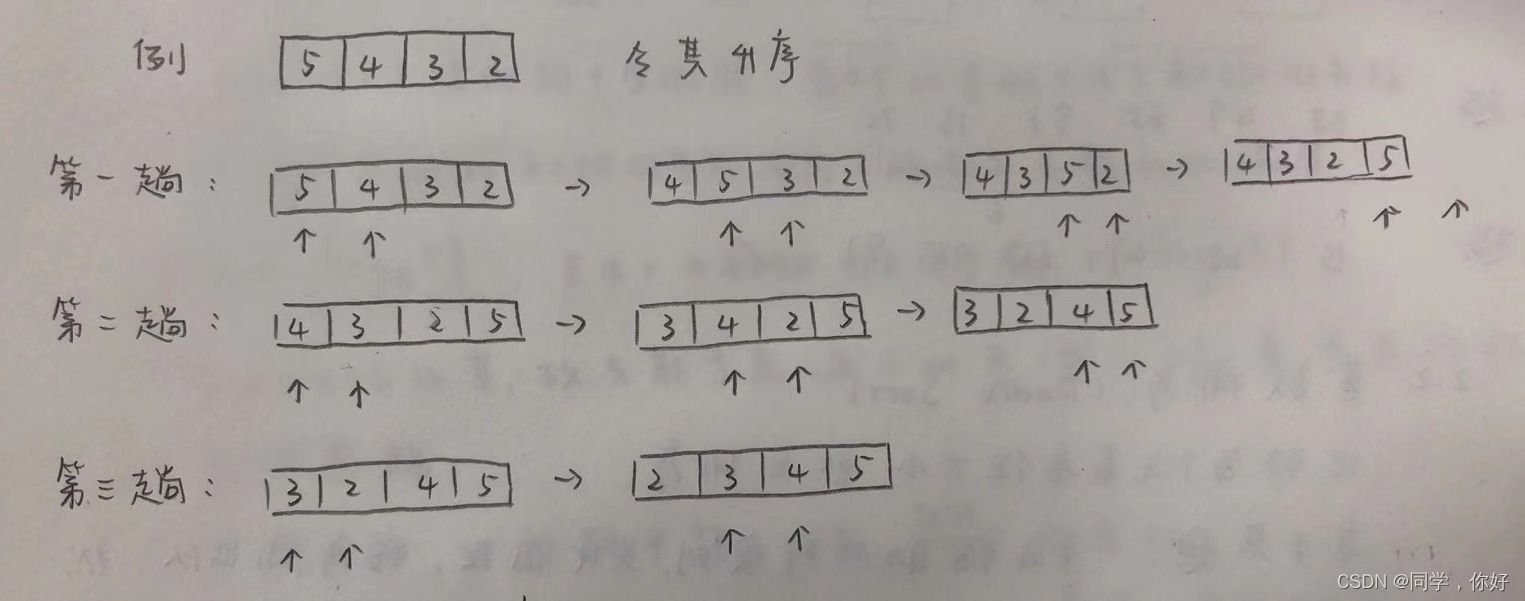 例 5 4 3 2 令其升序
第一趟: 5 4 3 2 → 4 5 3 2 → 4 3 5 2 → 4 3 2 5
↑ ↑ ↑ ↑ ↑ ↑ ↑ ↑
第二趟: 4 3 2 5 → 3 4 2 5 → 3 2 4 5
↑ ↑ ↑ ↑ ↑ ↑
第三趟: 3 2 4 5 → 2 3 4 5
↑ ↑ ↑ ↑
CSDN @同学，你好